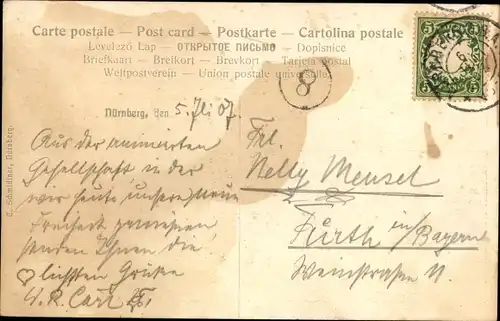 Carte postale – Post card – Postkarte – Cartolina postale
Levelező Lap – ОТКРЫТОЕ ПИСЬМО – Dopisnice
Briefkaart – Brefkort – Brevkort – Tarjeta postal
Weltpostverein – Union postale universelle
5 5
5 5
8
Nürnberg, den 5. Jli 07.
Aus der animirten
Gesellschaft in der
wir heute unsere neue
Freiheit
senden Ihnen die
Grüße
Carl
Frl.
Nelly Mensel
Fürth in/Bayern
Weinstraßen 11.
C. Schmidtner, Nürnberg.